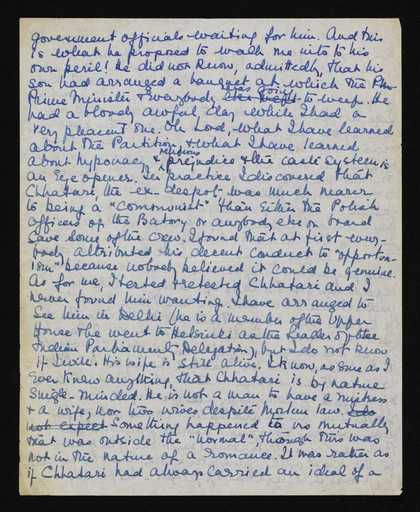 government officials waiting for him. And this
is what he proposed to walk me into to his
own peril! He did not know, admittedly, that his
son had arranged a banquet at which the
Prime Minister & everybody was going to weep. He
had a bloody awful day while I had a
very pleasant one. Oh Lord, what I have learned
about the Partition & what I have learned
about hypocrisy & religious prejudice & the caste system is
an eye opener. In practice I discovered that
Chhatari, the ex-despot, was much nearer
to being a "Communist" than either the Polish
officers of the Batory or anybody else on board
save some of the crew. I found that at first every-
body attributed his decent conduct to "opportun-
ism" because nobody believed it could be genuine.
As for me, I tested & retested Chhatari and I
never found him wanting. I have arranged to
see him in Delhi (he is a member of the Upper
House & he went to Helsinki as the leader of the
Indian Parliament Delegation), but I do not know
if I will. His wife is still alive. I know, as sure as I
ever knew anything, that Chhatari is by nature
single-minded. He is not a man to have a mistress
& a wife, nor two wives despite Moslem law. I do
not expect Something happened to us mutually
that was outside the "normal", though this was
not in the nature of a romance. It was rather as
if Chhatari had always carried an ideal of a